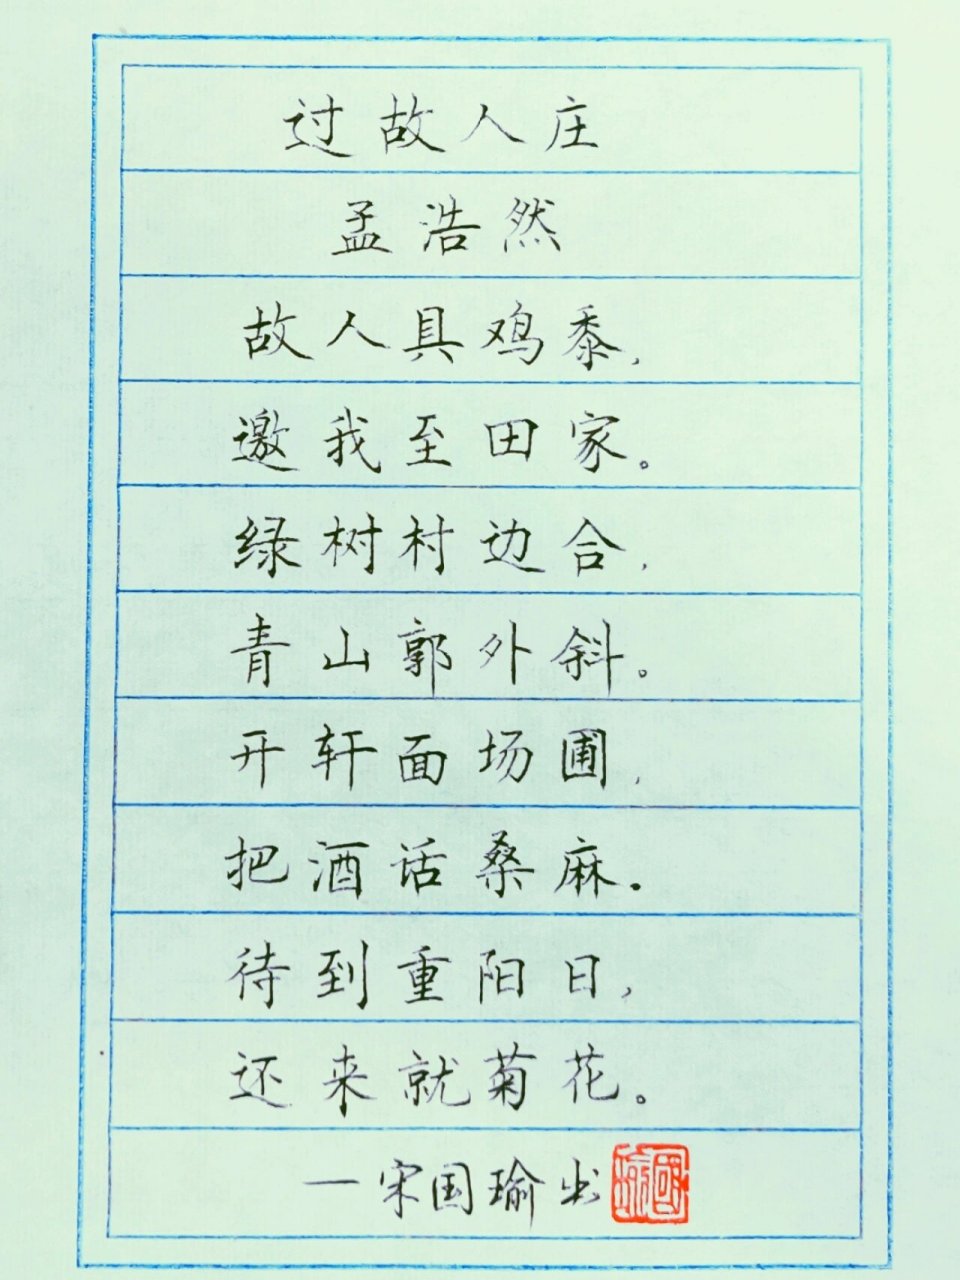 过故人庄
孟浩然
故人具鸡黍，
邀我至田家。
绿树村边合，
青山郭外斜。
开轩面场圃，
把酒话桑麻。
待到重阳日，
还来就菊花。
—宋国瑜书